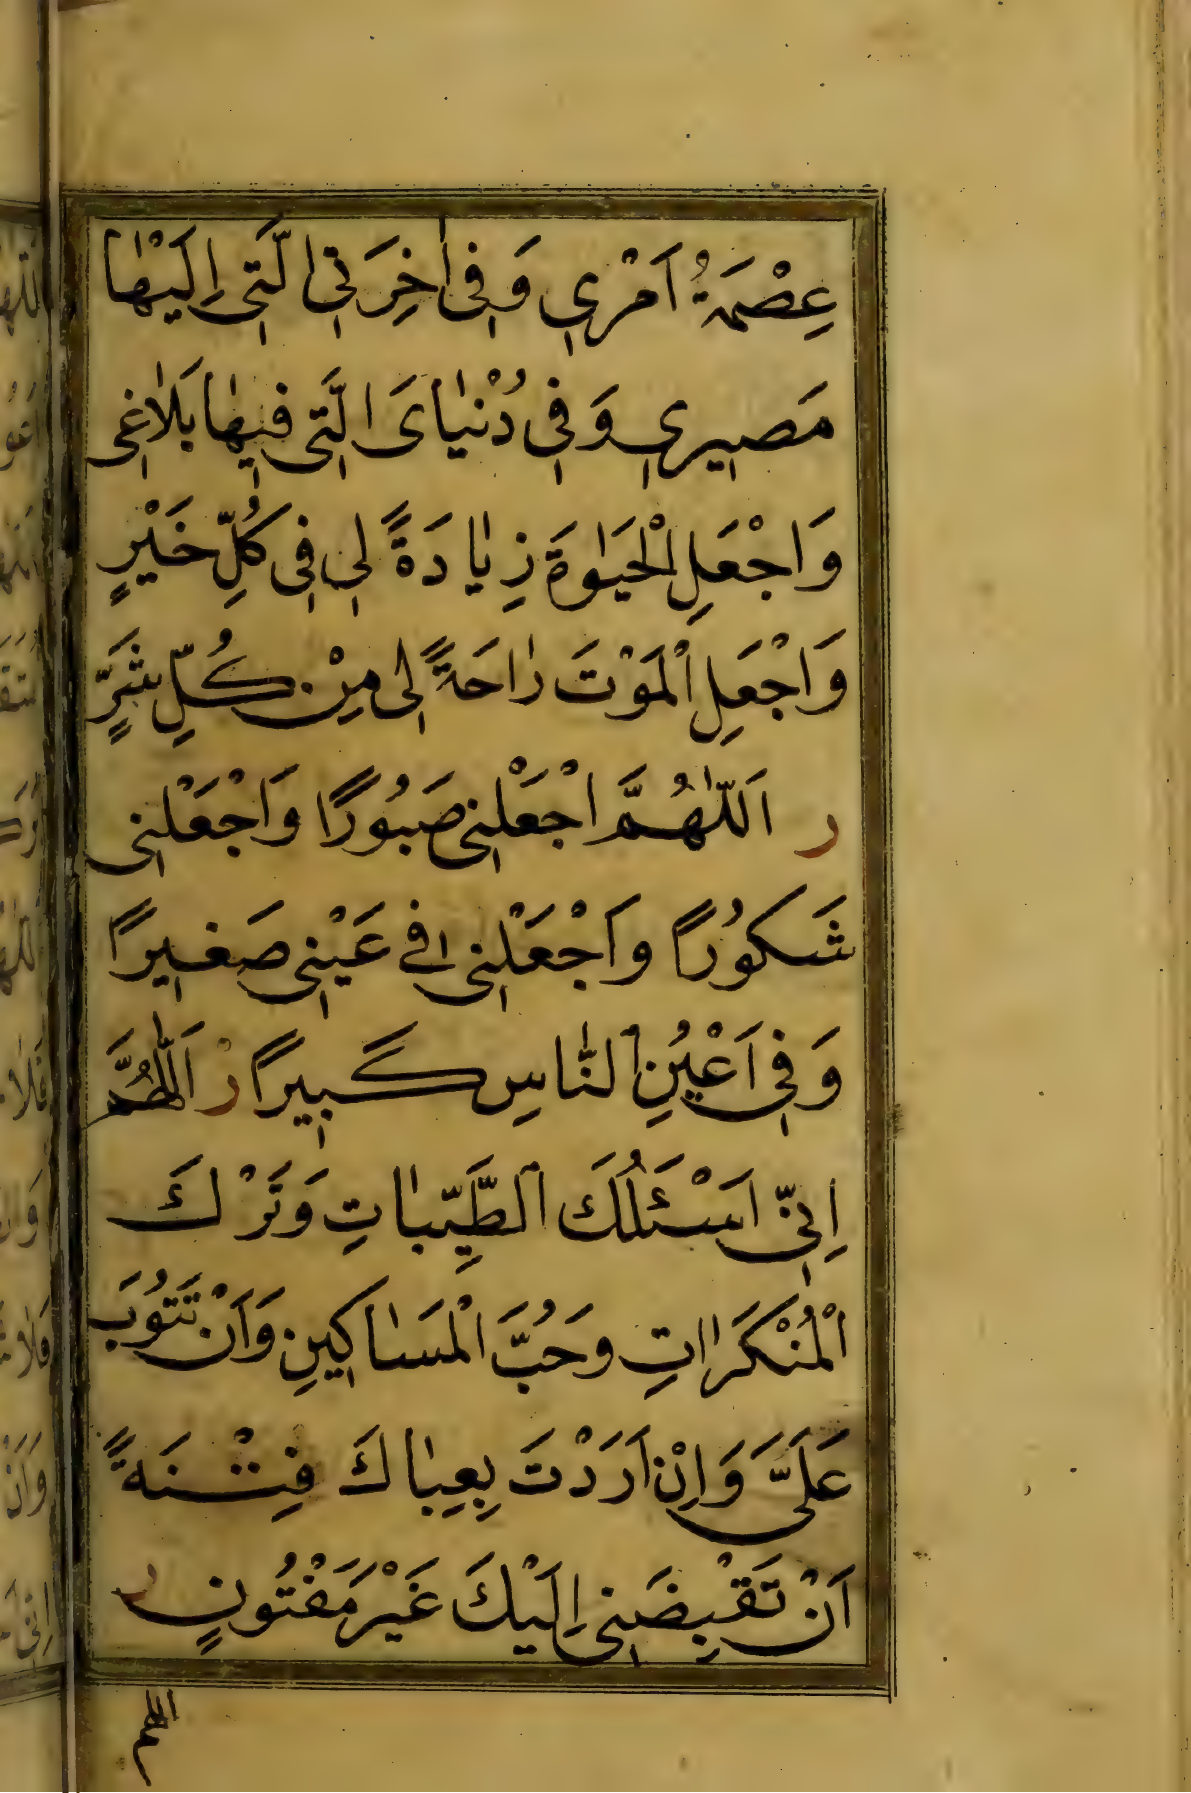 عِصْمَةُ اَمْرِي وَفِى اٰخِرَتِى الَّتِى اِلَيْهٰا
مَصِيرِي وَفِى دُنْيٰاىَ الَّتِى فِيهٰا بَلٰاغِى
وَاجْعَلِ الْحَيٰوةَ زِيٰادَةً لِى فِى كُلِّ خَيْرٍ
وَاجْعَلِ الْمَوْتَ رٰاحَةً لِى مِنْ كُلِّ شَرٍّ
ر اَللّٰهُمَّ اجْعَلْنِى صَبُورًا وَاجْعَلْنِى
شَكُورًا وَاجْعَلْنِى فِى عَيْنِى صَغِيرًا
وَفِى اَعْيُنِ النّٰاسِ كَبِيرًا ر اَللّٰهُمَّ
اِنِّى اَسْئَلُكَ الطَّيِّبٰاتِ وَتَرْكَ
الْمُنْكَرٰاتِ وَحُبَّ الْمَسٰاكِينِ وَاَنْ تَتُوبَ
عَلَىَّ وَاِنْ اَرَدْتَ بِعِبٰاكَ فِتْنَةً
اَنْ تَقْبِضَنِى اِلَيْكَ غَيْرَ مَفْتُونٍ ر
اللهم